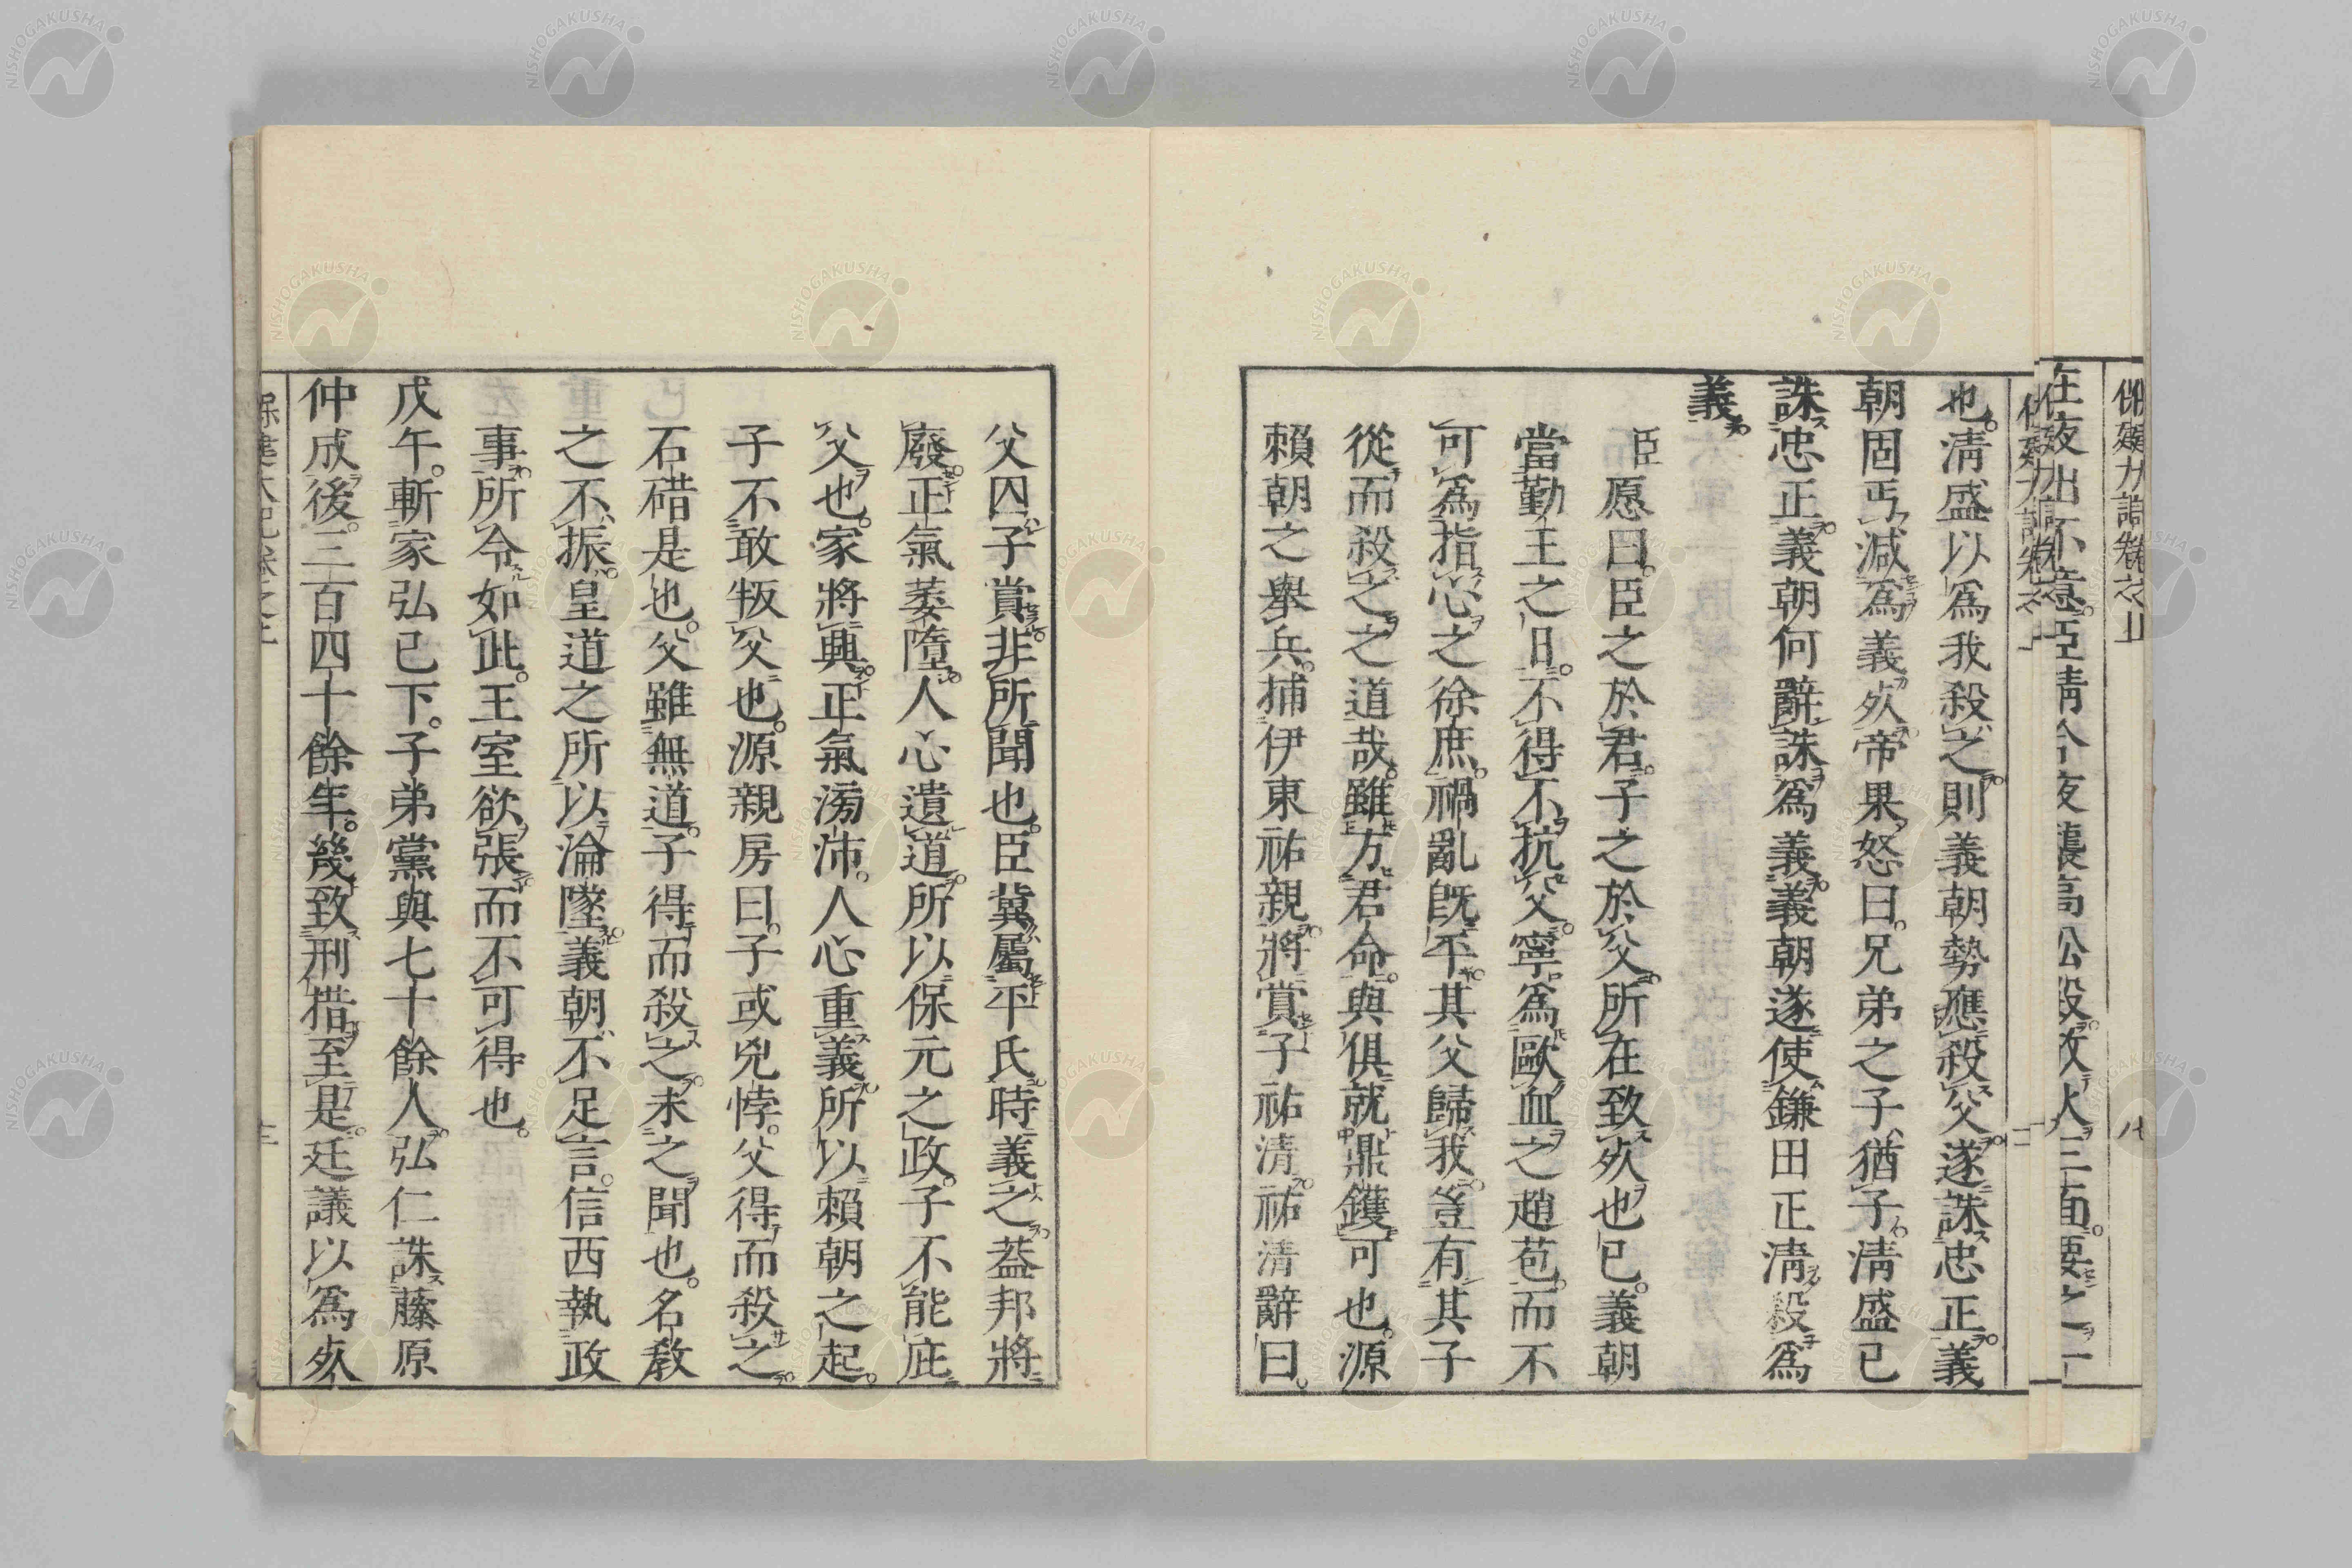 也清盛以爲我殺之則義朝勢應殺父遂誅忠正義
朝固丐減爲義死帝果怒曰兄弟之子猶子清盛已
誅忠正義朝何辭誅爲義義朝遂使鎌田正淸殺爲
義
臣愿曰臣之於君子之於父所在致死也已義朝
當勤王之日不得不抗父寧爲歐血之趙苞而不
可爲指心之徐庶禍亂旣平其父歸我豈有其子
從而殺之之道哉雖方君命與俱就鼎鑊可也源
賴朝之舉兵捕伊東祐親將賞子祐淸祐清辭曰
父囚子賞非所聞也臣冀屬平氏時義之蓋邦將
廢正氣萎墮人心遺道所以保元之政子不能庇
父也家將興正氣滂沛人心重義所以賴朝之起
子不敢叛父也源親房曰子或兇悖父得而殺之
石碏是也父雖無道子得而殺之未之聞也名敎
之不振皇道之所以淪墜義朝不足言信西執政
事所令如此王室欲張而不可得也
戊午斬家弘已下子弟黨與七十餘人弘仁誅藤原
仲成後三百四十餘年幾致刑措至是廷議以爲死
NISHOGAKUSHA